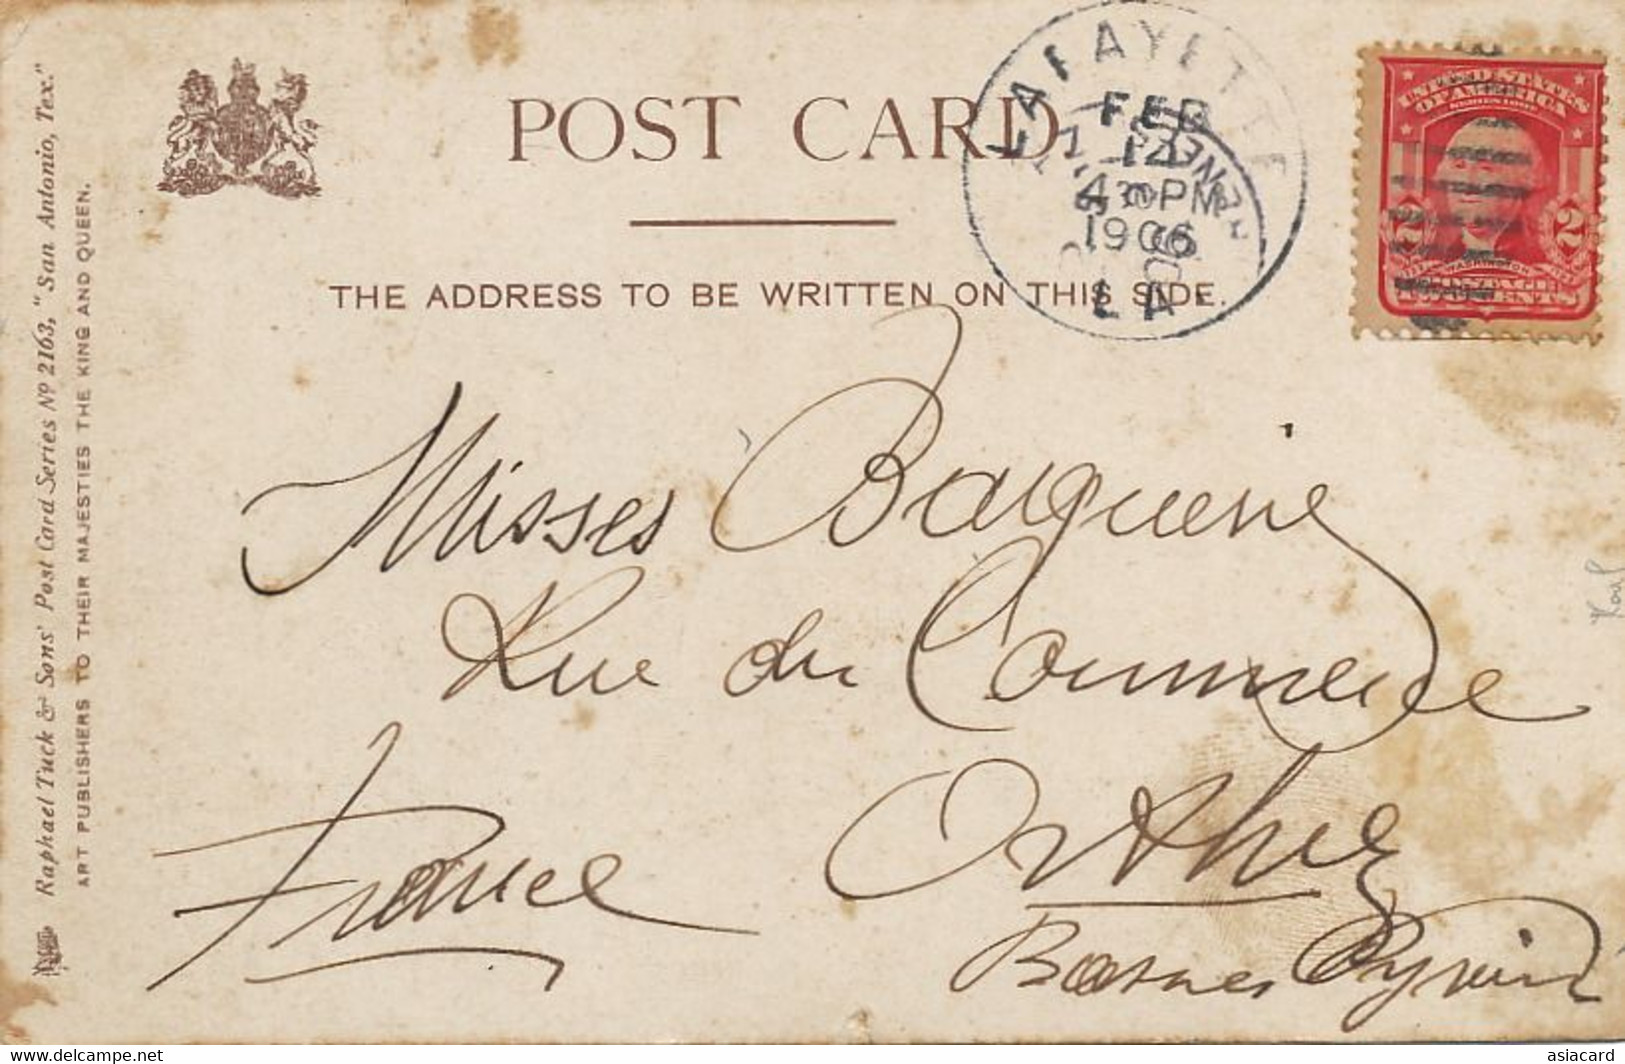 Raphael Tuck & Sons' Post Card Series Nº 2163, "San Antonio, Tex."
ART PUBLISHERS TO THEIR MAJESTIES THE KING AND QUEEN.
POST CARD
THE ADDRESS TO BE WRITTEN ON THIS SIDE.
LAFAYETTE
FEB
14
4 30 PM
1906
LA.
UNITED STATES
OF AMERICA
SERIES 1902
2 2
WASHINGTON
TWO CENTS
Misses
Rue du Commerce
Orthez
France
Basses Pyrénées
www.delcampe.net
asiacard